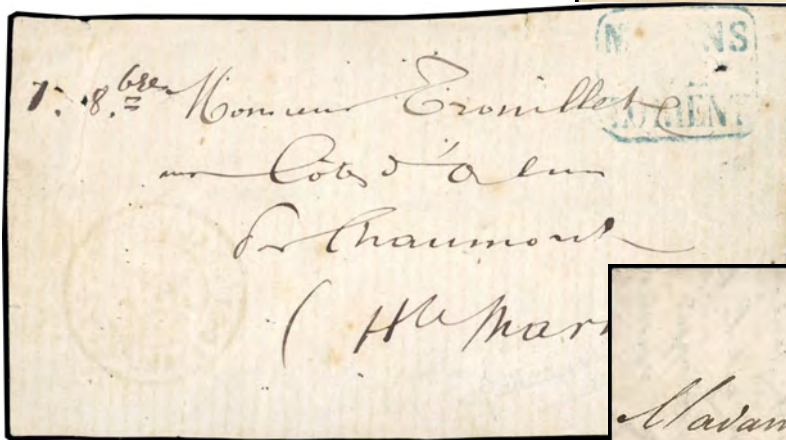 7. 8.bre Monsieur Trouillet
aux Côtes d'Alun
Pr Chaumont
(Hte Mar
Madam